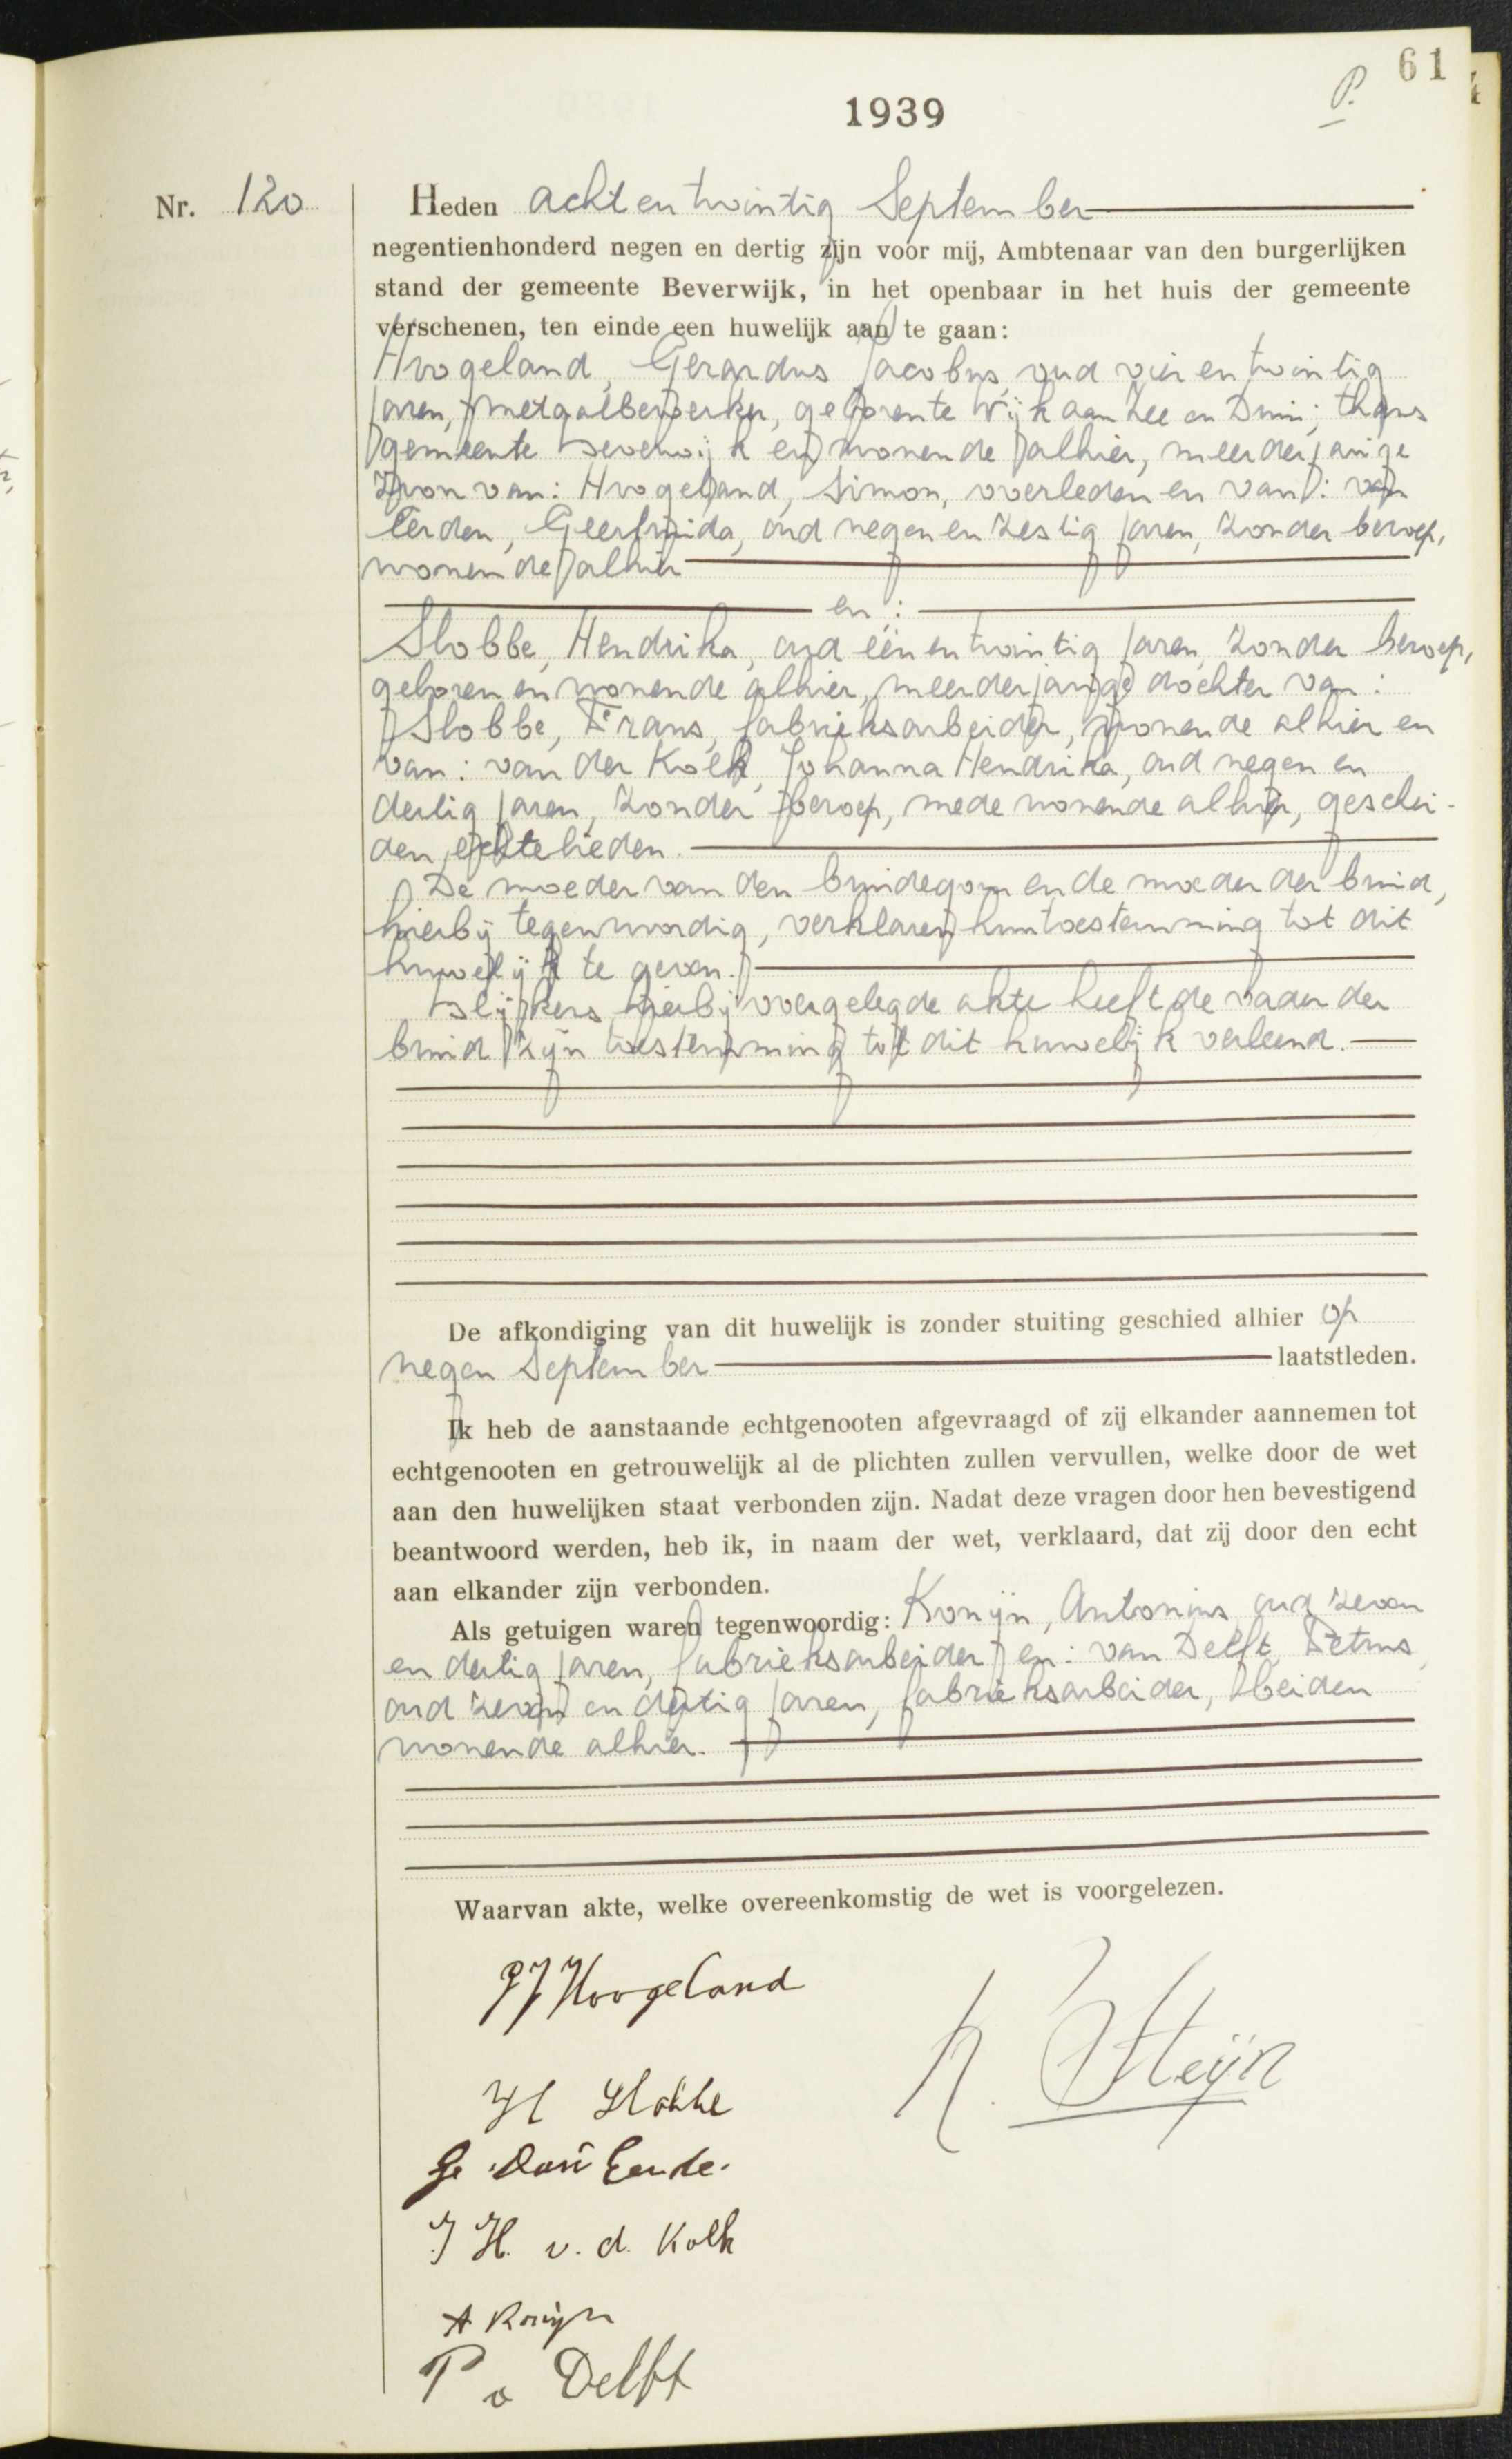 61
P.
1939
Nr. 120
Heden achtentwintig September
negentienhonderd negen en dertig zijn voor mij, Ambtenaar van den burgerlijken
stand der gemeente Beverwijk, in het openbaar in het huis der gemeente
verschenen, ten einde een huwelijk aan te gaan:
Hoogeland, Gerardus Jacobus, oud vierentwintig
jaren, metaalbewerker, geboren te Wijk aan Zee en Duin; thans
gemeente Beverwijk en wonende alhier, meerderjarige
zoon van: Hoogeland, Simon, overleden en van: van
Eerden, Geertruida, oud negen en zestig jaren, zonder beroep,
wonende alhier
en:
Slobbe, Hendrika, oud één en twintig jaren, zonder beroep,
geboren en wonende alhier, meerderjarige dochter van:
Slobbe, Frans, fabrieksarbeider, wonende alhier en
van: van der Kolk, Johanna Hendrika, oud negen en
dertig jaren, zonder beroep, mede wonende alhier, geschei-
den echtelieden.
De moeder van den bruidegom en de moeder der bruid,
hierbij tegenwoordig, verklaren hun toestemming tot dit
huwelijk te geven.
Blijkens hierbij overgelegde akte heeft de vader der
bruid zijn toestemming tot dit huwelijk verleend.
De afkondiging van dit huwelijk is zonder stuiting geschied alhier op
negen September laatstleden.
Ik heb de aanstaande echtgenooten afgevraagd of zij elkander aannemen tot
echtgenooten en getrouwelijk al de plichten zullen vervullen, welke door de wet
aan den huwelijken staat verbonden zijn. Nadat deze vragen door hen bevestigend
beantwoord werden, heb ik, in naam der wet, verklaard, dat zij door den echt
aan elkander zijn verbonden.
Als getuigen waren tegenwoordig: Konijn, Antonius, oud zeven
en dertig jaren, fabrieksarbeider en: van Delft, Petrus,
oud zeven en dertig jaren, fabrieksarbeider, beiden
wonende alhier.
Waarvan akte, welke overeenkomstig de wet is voorgelezen.
GJ Hoogeland
H Slobbe
J H. v. d. Kolk
A Konijn
P v Delft